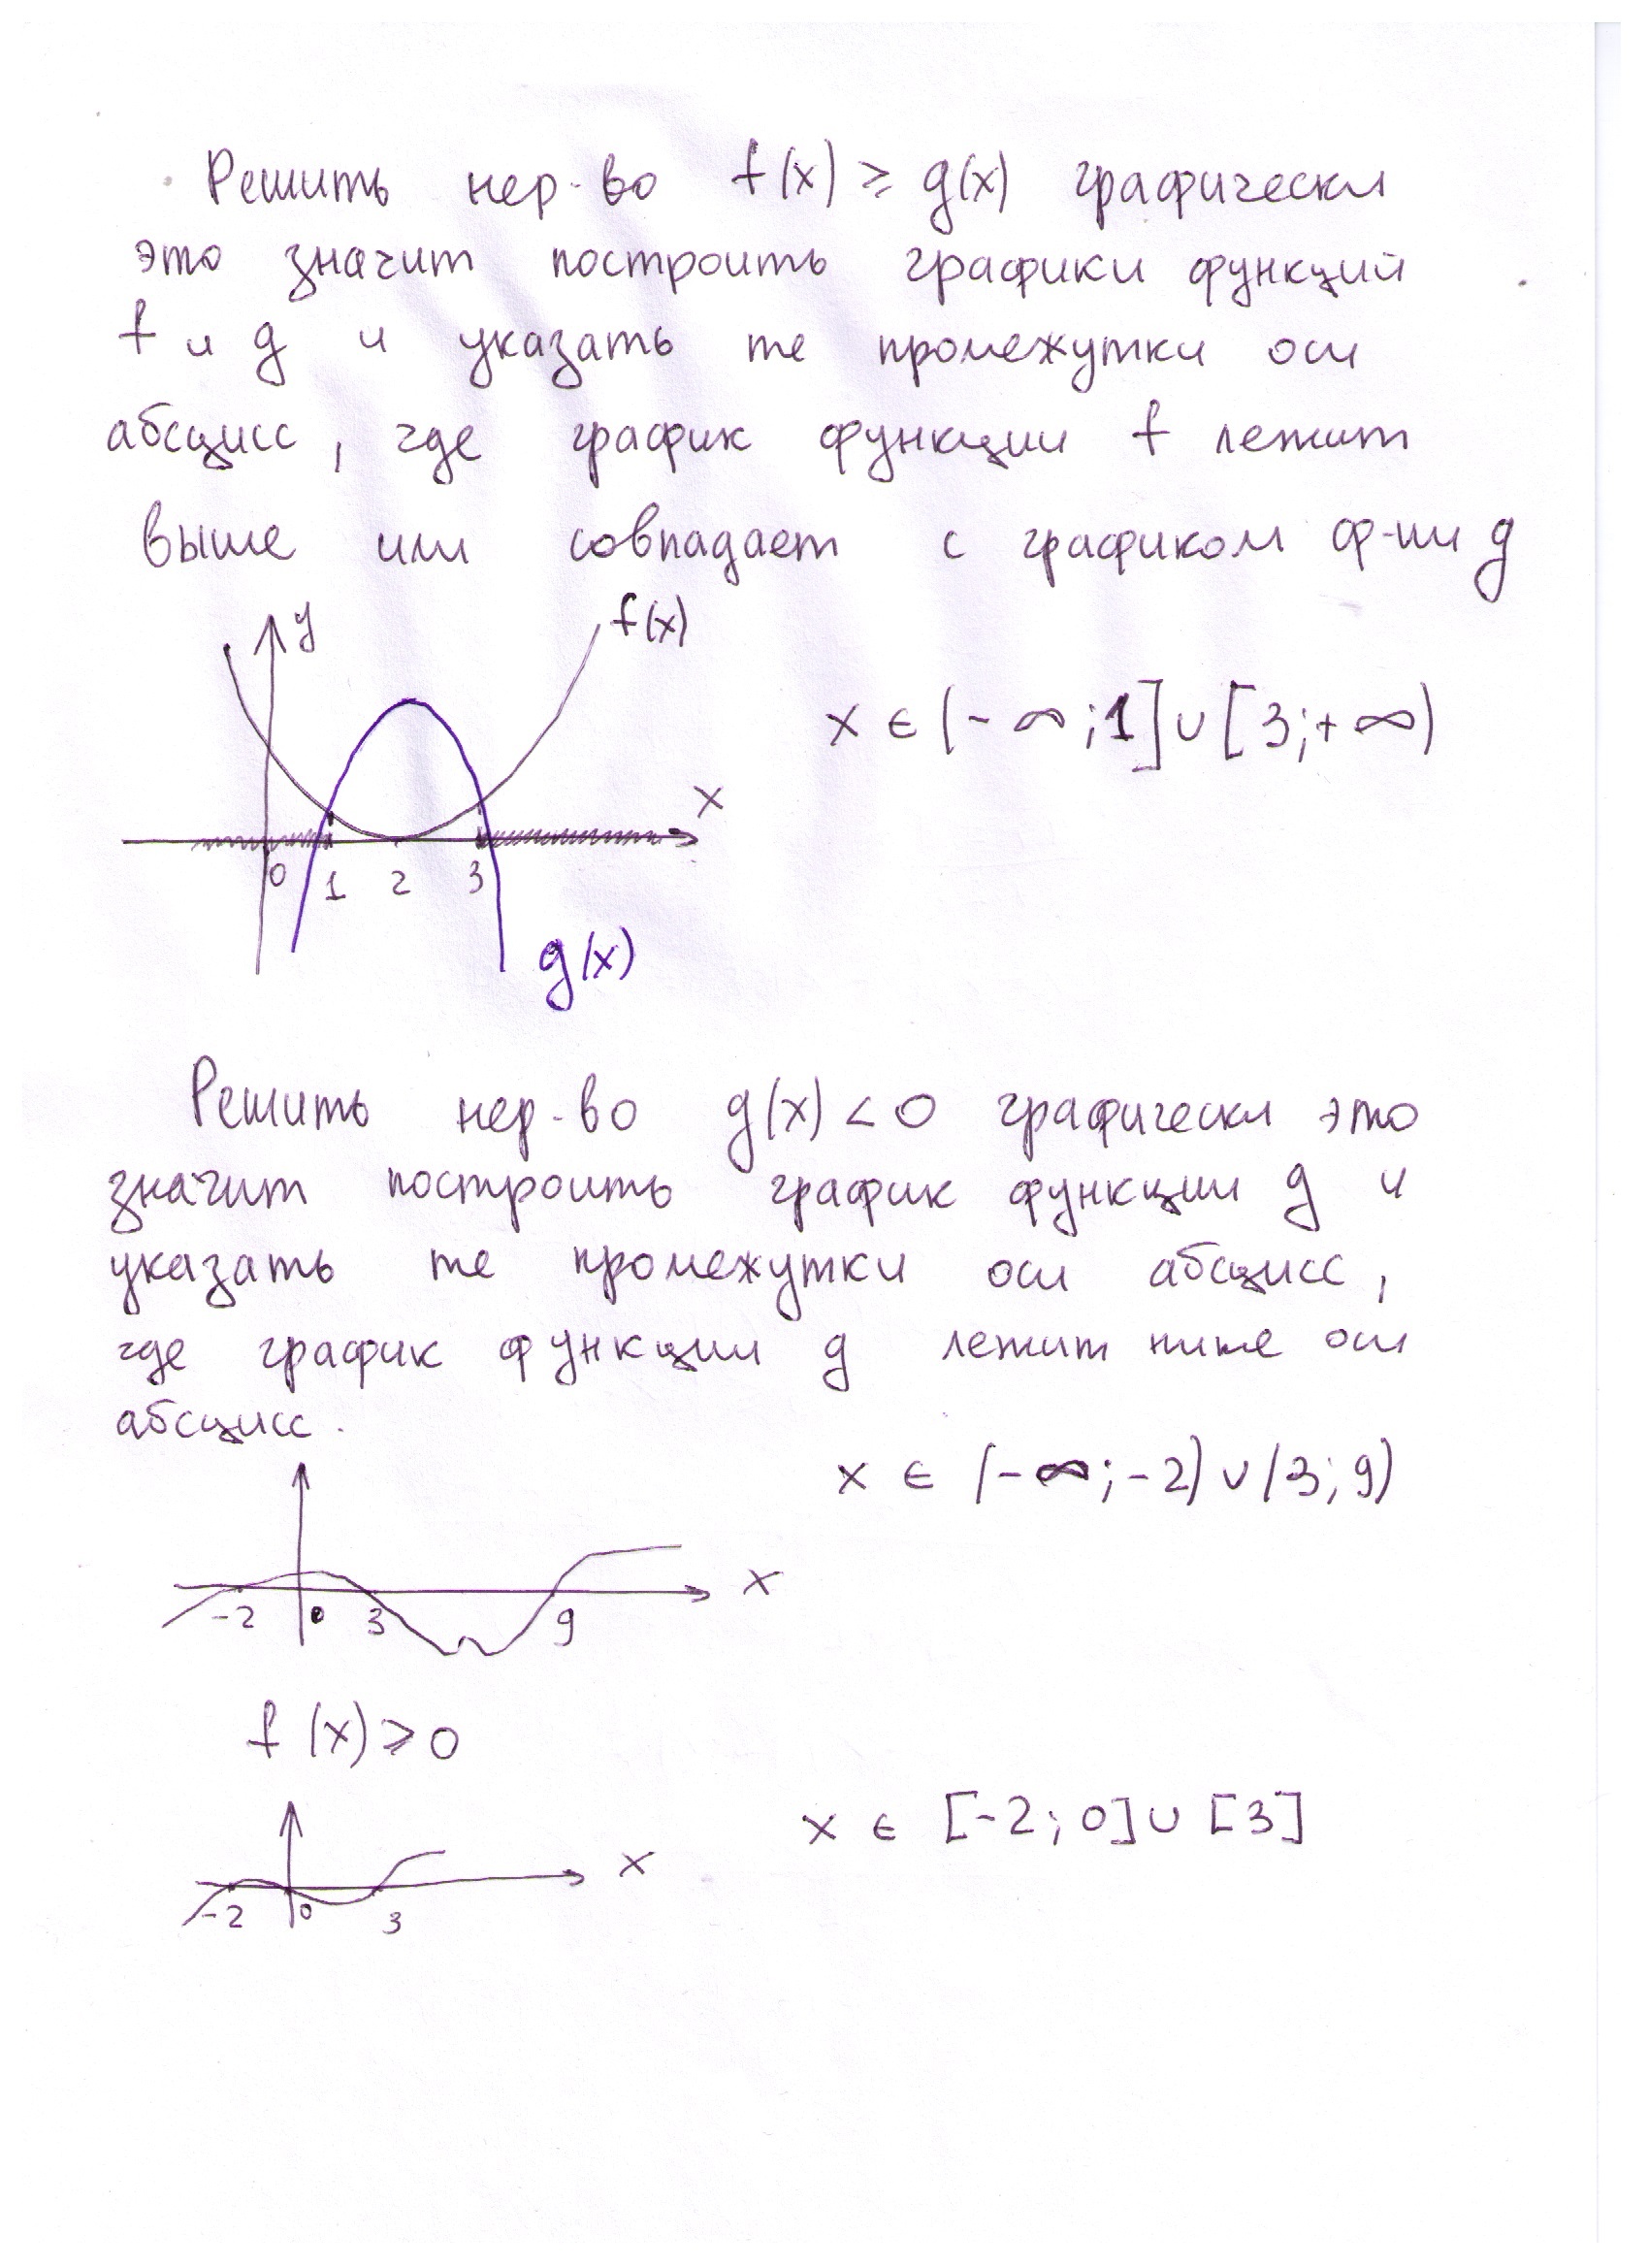 Решить нер-во f(x) ≥ g(x) графически
это значит построить графики функций
f и g и указать те промежутки оси
абсцисс, где график функции f лежит
выше или совпадает с графиком ф-ии g
y f(x)
x ∈ (-∞;1]∪[3;+∞)
x
0 1 2 3
g(x)
Решить нер-во g(x) < 0 графически это
значит построить график функции g и
указать те промежутки оси абсцисс,
где график функции g лежит ниже оси
абсцисс.
x ∈ (-∞;-2)∪(3;9)
x
-2 0 3 9
f(x) ≥ 0
x ∈ [-2;0]∪[3]
x
-2 0 3